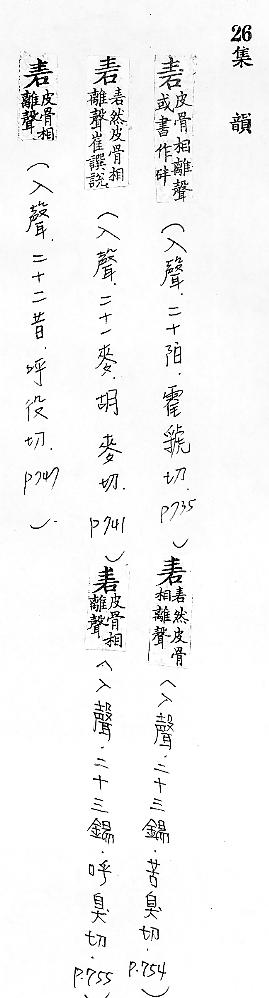 26集韻
砉皮骨相離聲或書作砉(入聲.二十陌.霍虢切.P735)
砉砉然皮骨相離聲(入聲.二十三錫.苦臭切.P.754)
砉砉然皮骨相離聲崔譔說(入聲.二十一麥.胡麥切.P741)
砉皮骨相離聲(入聲.二十三錫.呼臭切.P.755)
砉皮骨相離聲(入聲.二十二昔.呼役切.P747)